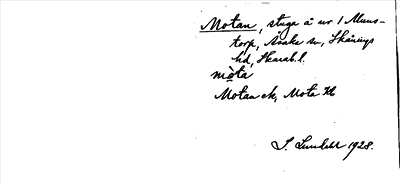 Motan, stuga å nr 1 Muns-
torp, Åsaka sn, Skånings
hd, Skarab. l.
mòta
Motan ck, Mota Kl
S. Lundahl 1928.